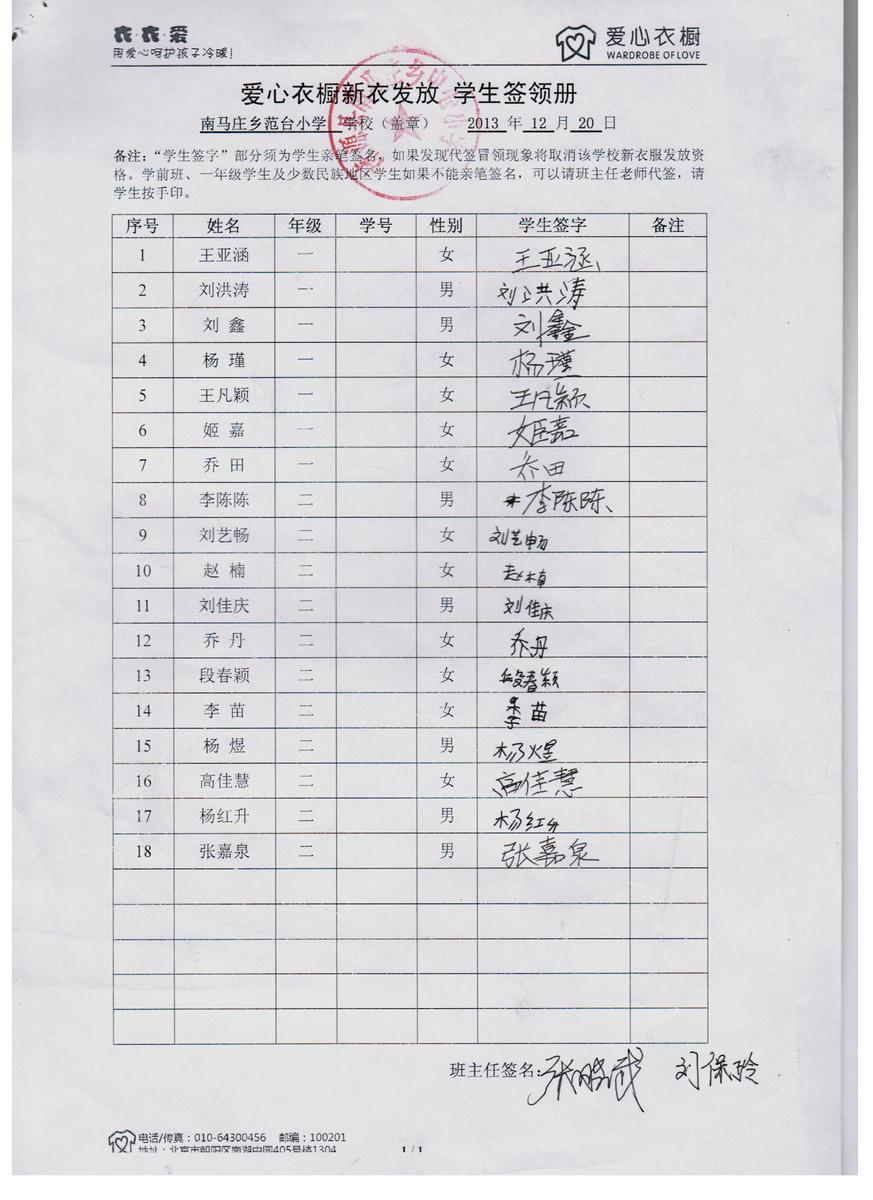 衣·衣·爱
用爱心呵护孩子冷暖!
爱心衣橱
WARDROBE OF LOVE
爱心衣橱新衣发放 学生签领册
南马庄乡范台小学 学校（盖章） 2013 年 12 月 20 日
备注：“学生签字”部分须为学生亲笔签名，如果发现代签冒领现象将取消该学校新衣服发放资
格。学前班、一年级学生及少数民族地区学生如果不能亲笔签名，可以请班主任老师代签，请
学生按手印。
序号 姓名 年级 学号 性别 学生签字 备注
1 王亚涵 一 女 王亚涵、
2 刘洪涛 一 男 刘洪涛
3 刘 鑫 一 男 刘鑫
4 杨 瑾 一 女 杨瑾
5 王凡颖 一 女 王凡颖
6 姬 嘉 一 女 姬嘉
7 乔 田 一 女 乔田
8 李陈陈 二 男 李陈陈、
9 刘艺畅 二 女 刘艺畅
10 赵 楠 二 女 赵楠
11 刘佳庆 二 男 刘佳庆
12 乔 丹 二 女 乔丹
13 段春颖 二 女 段春颖
14 李 苗 二 女 李苗
15 杨 煜 二 男 杨煜
16 高佳慧 二 女 高佳慧
17 杨红升 二 男 杨红升
18 张嘉泉 二 男 张嘉泉
班主任签名: 刘保玲
电话/传真：010-64300456 邮编：100201
地址：北京市朝阳区南湖中园405号楼1304
1 / 1